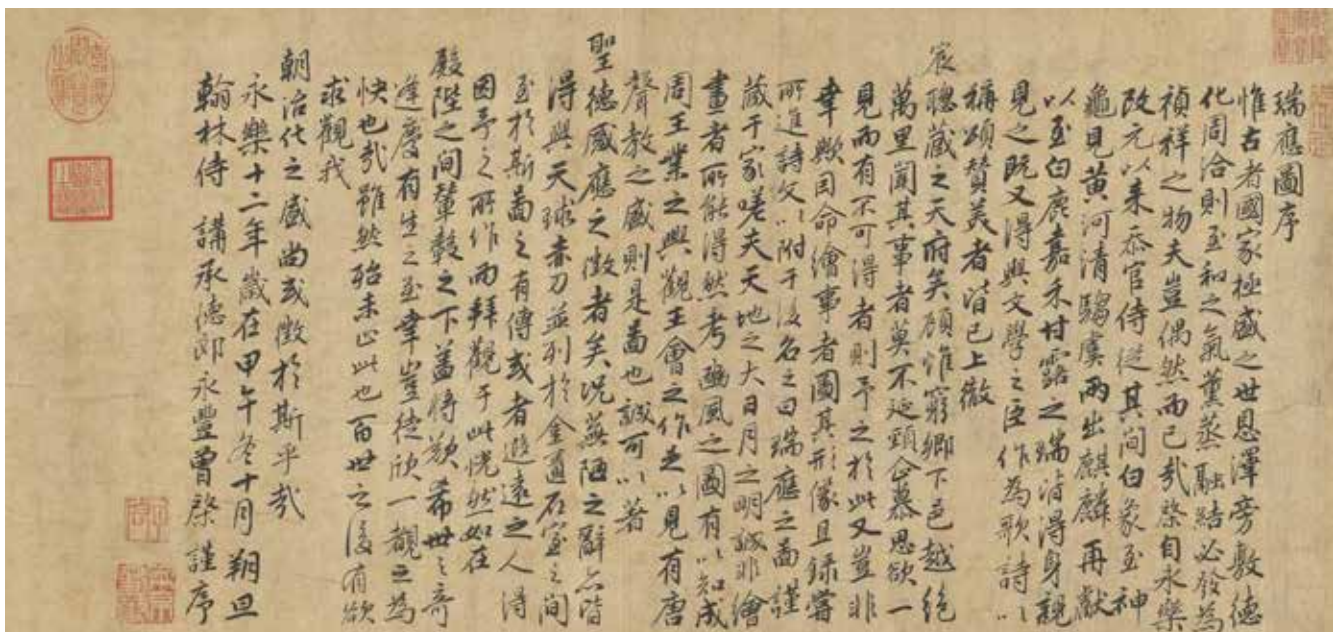 瑞應圖序
惟古者國家極盛之世恩澤旁敷德
化周洽則至和之氣薰蒸融結必發為
禎祥之物夫豈偶然而已哉棨自永樂
改元以来忝官侍從其間白象至神
龜見黃河清騶虞兩出麒麟再獻
以至白鹿嘉禾甘露之瑞皆得身親
見之既又得與文學之臣作為歌詩以
稱頌贊美者皆已上徹
宸聰藏之天府矣顧惟窮鄉下邑越絕
萬里聞其事者莫不延頸企慕思欲一
見而有不可得者則予之於此又豈非
幸歟因命繪事者圖其形像且錄嘗
所進詩文以附于後名之曰瑞應之圖謹
藏于家嗟夫天地之大日月之明誠非繪
畫者所能得然考豳風之圖有以知成
周王業之興觀王會之作足以見有唐
聲教之盛則是圖也誠可以著
聖德感應之徵者矣況蕪陋之辭亦皆
得與天球赤刀並列於金匱石室之間
至於斯圖之有傳或者遐遠之人得
因予之所作而拜觀于此恍然如在
殿陛之間輦轂之下蓋將歎希世之奇
逢慶有生之至幸豈徒欣一覩之為
快也哉雖然殆未止此也百世之後有欲
求觀我
朝治化之盛尚或徵於斯乎哉
永樂十二年歲在甲午冬十月朔旦
翰林侍講承德郎永豐曾棨謹序